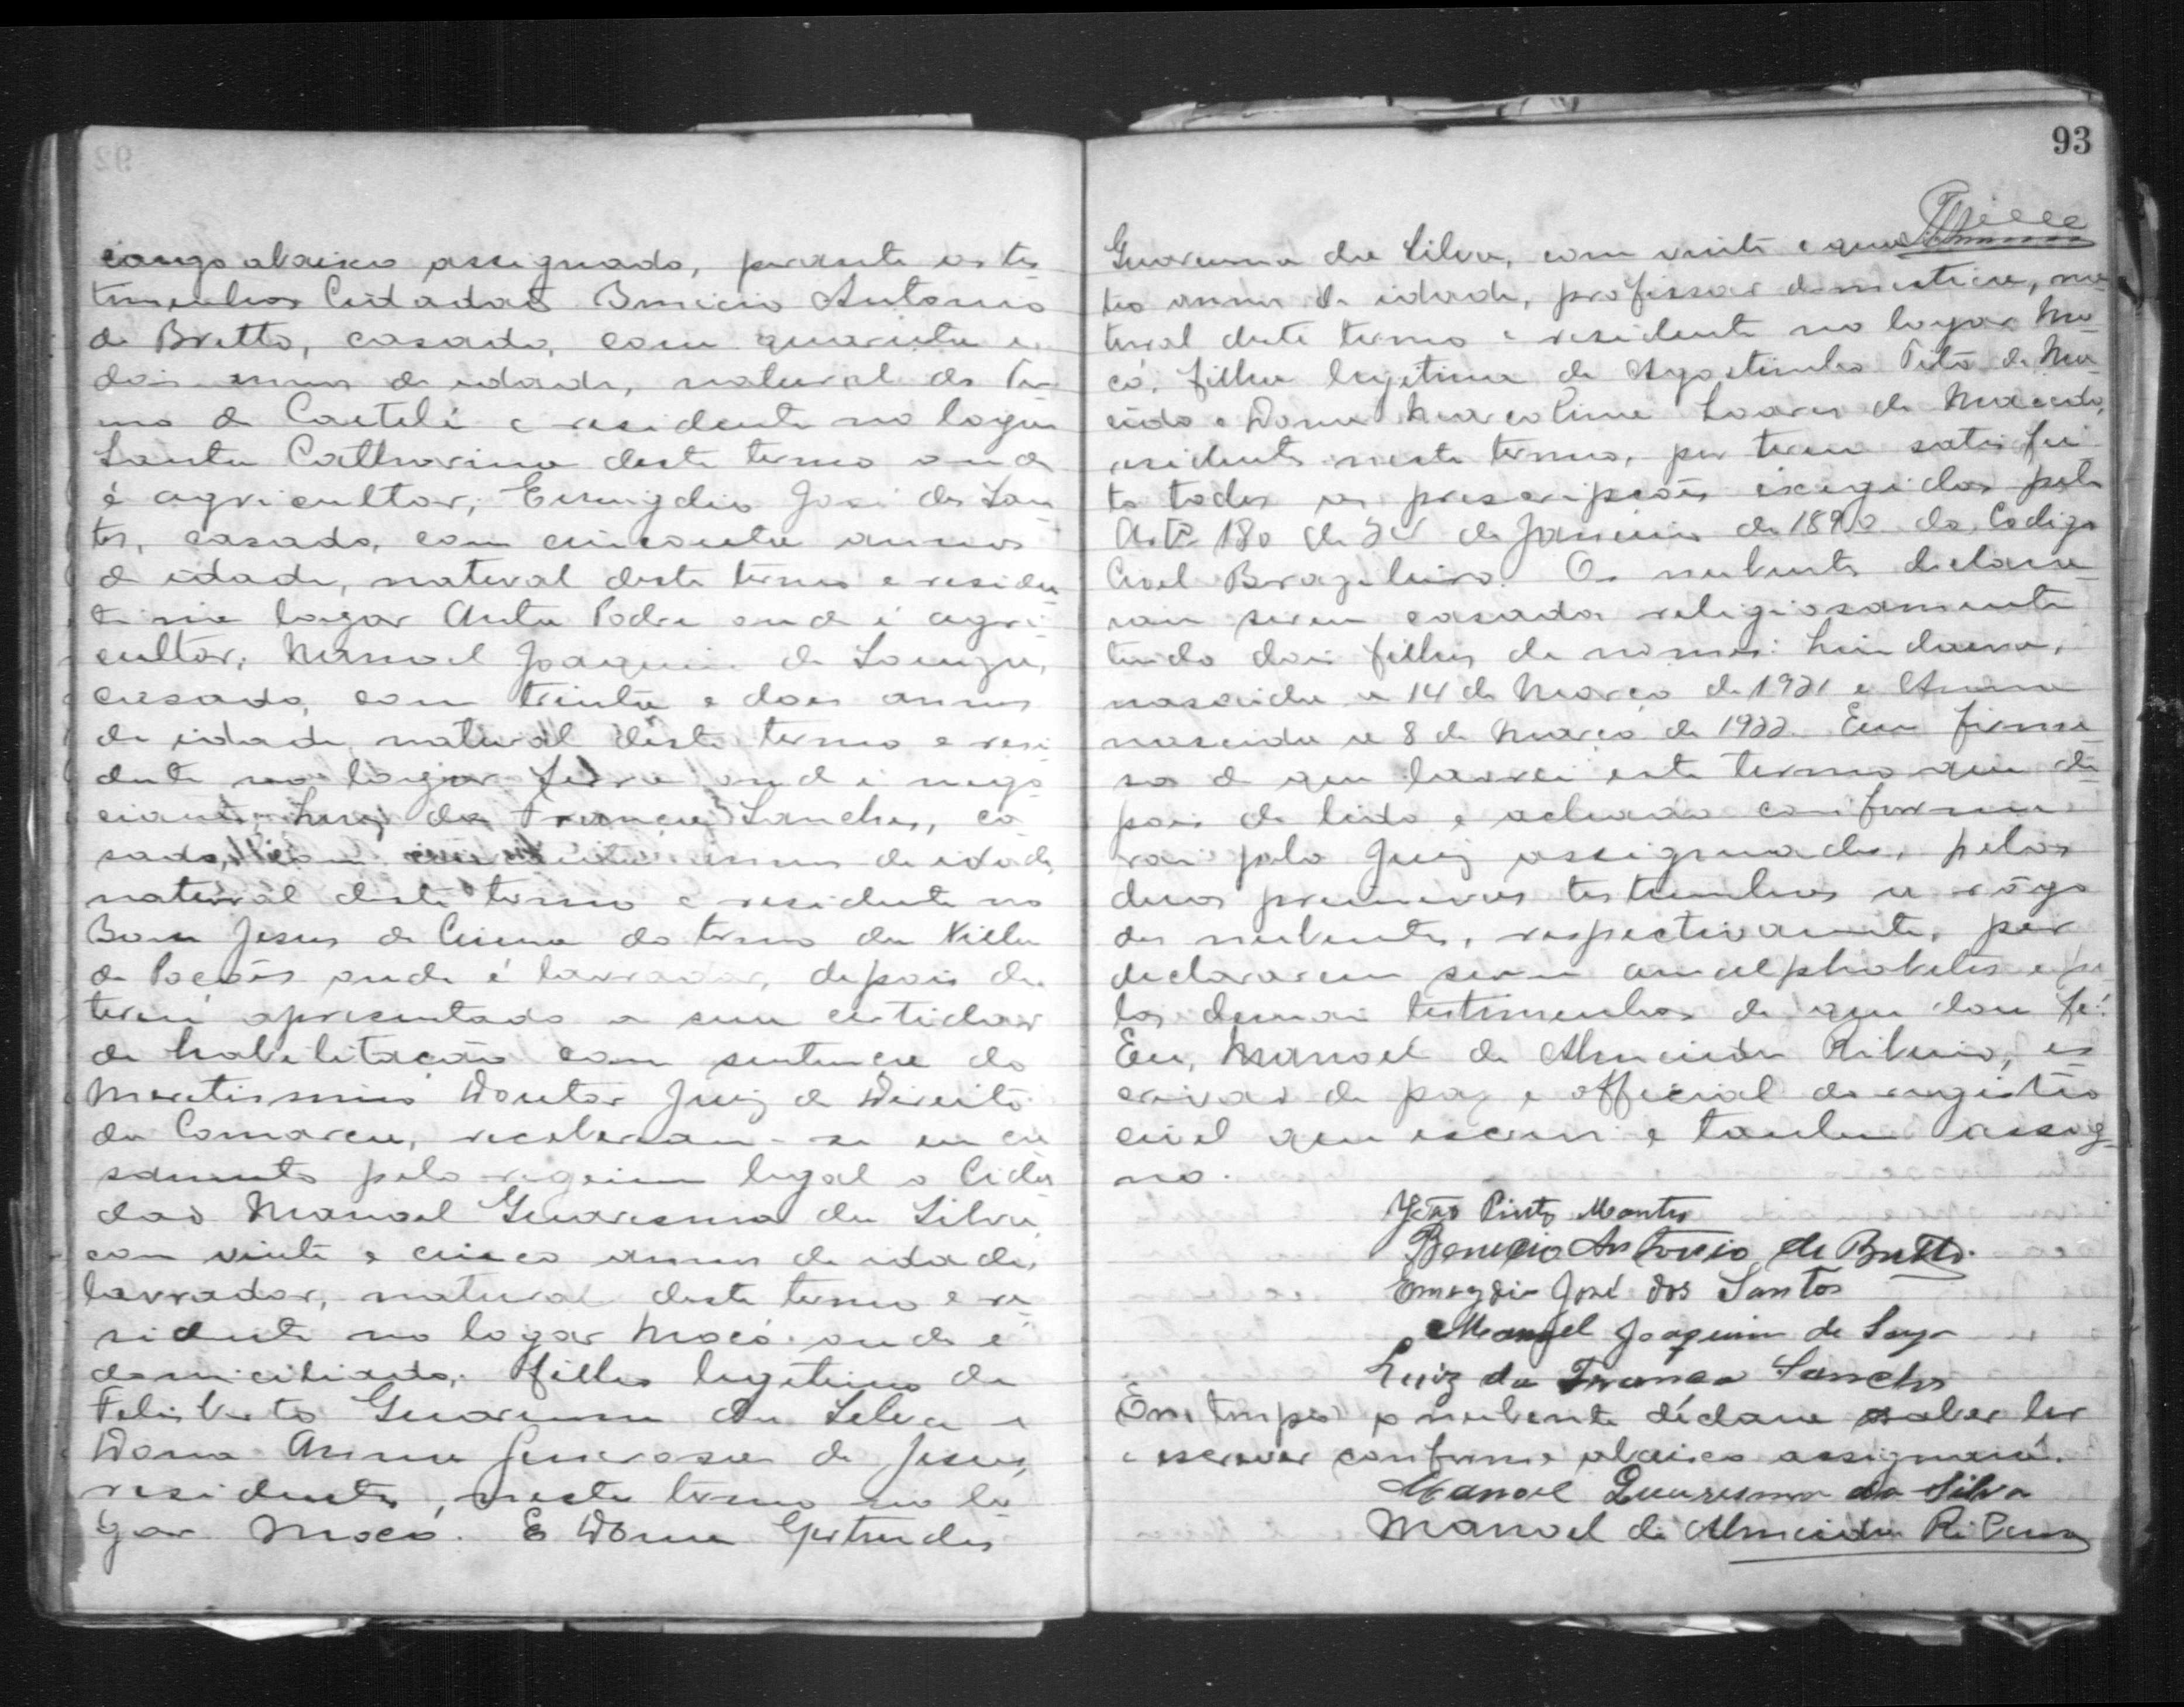 cargo abaixo assignado, perante as tes
timunhas Cidadãos Benicio Antonio
de Britto, casado, com quarenta e
dois annos de idade, natural do Ter
mo de Caeteté e residente no logar
Santa Catharina deste termo onde
é agricultor; Emygdio José dos San
tos, casado, com cincoenta annos
de idade, natural deste termo e residen
te no logar Anta Podre onde é agri
cultor; Manoel Joaquim de Souza,
casado, com trinta e dois annos
de idade natural deste termo e resi
dente no logar Feira onde é nego
ciante; Luiz da França Sanches, ca
sado, com annos de idade
natural deste termo e residente no
Bom Jesus de Cima do termo da Villa
de Poções onde é lavrador, depois de
terem apresentado a sua certidão
de habilitação com sentença do
Meretissimo Doutor Juiz de Direito
da Comarca, receberam-se em ca
samento pelo regimen legal o Cida
dão Manoel Quaresma da Silva
com vinte e cinco annos de idade,
lavrador, natural deste termo e re
sidente no logar Mocó onde é
domiciliado, filho legitimo de
Felisberto Quaresma da Silva e
Dona Anna Generosa de Jesus,
residentes, neste termo no lo
gar Mocó. E Dona Gertrudes
93
Quaresma da Silva, com vinte e qua
tro annos de idade, profissão domestica, na
tural deste termo e residente no logar Mo
có, filha legitima de Agostinho Pitô de Ma
cêdo e Dona Marcolina Soares de Macedo,
residentes neste termo, por terem satisfei
to todas as prescripções exigidas pelo
Art. 180 de 24 de Janeiro de 1890 do Codigo
Civel Brazileiro. Os nubentes declara
ram serem casados religiosamente
tendo dois filhos de nomes: Lindaura,
nascida a 14 de Março de 1921 e Anna
nascida a 8 de Março de 1922. Em firme
sa de que lavrei este termo que de
pois de lido e achado conforme
vai pelo Juiz assignado, pelas
duas primeiras testemunhas a rôgo
dos nubentes, respectivamente, por
declararem serem analphabetos e pe
las demais testimunhas de que dou fé.
Eu, Manoel de Almeida Ribeiro, es
crivão de paz e official do registro
civel que escrevi e tambem assig
no.
João Pinto Montes
Benicio Antonio de Britto.
Emegdio José dos Santos
Manoel Joaquim de Souza
Luiz da França Sanches
Em tempo o nubente déclara saber ler
e escrever conforme abaixo assignará.
Manoel Quaresma da Silva
Manoel de Almeida Ribeiro